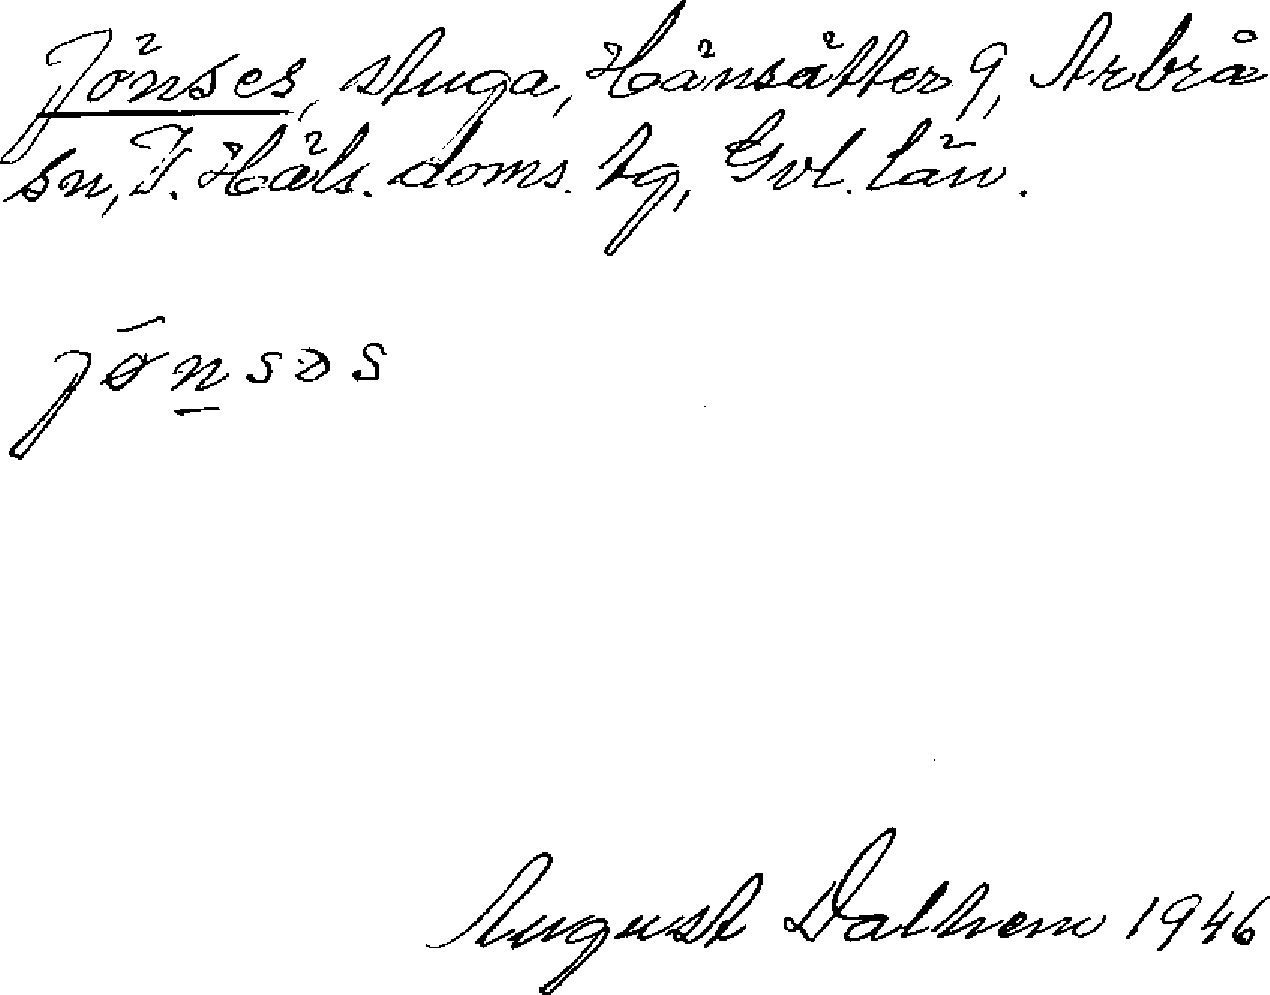 Jönses, stuga, Hänsätter 9, Arbrå
sn, V. Häls. doms. tg, Gvl. län.
jö̱nsəs
August Dalhem 1946